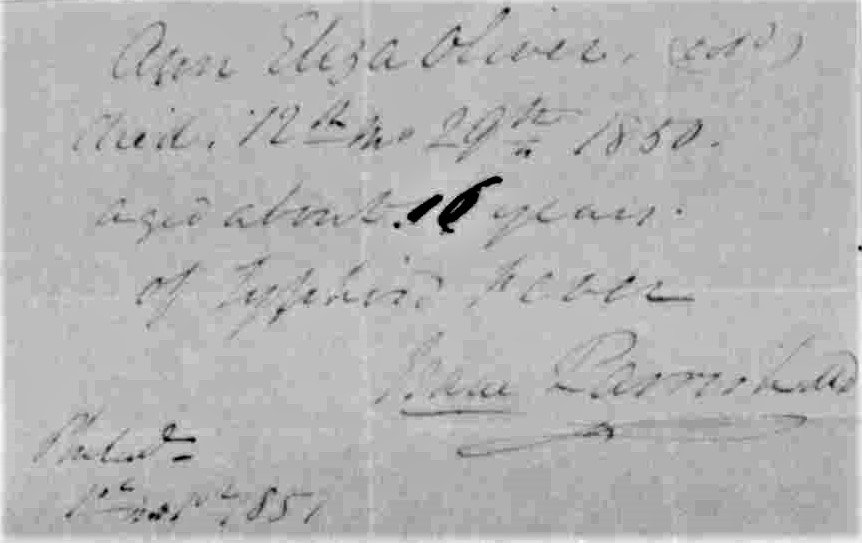 Ann Eliza Oliver, (cold)
died. 12th mo 29th 1850.
aged about 16 years.
of Typhoid Fever
Isaac Parrish MD
Philada
1st mo 1st 1851